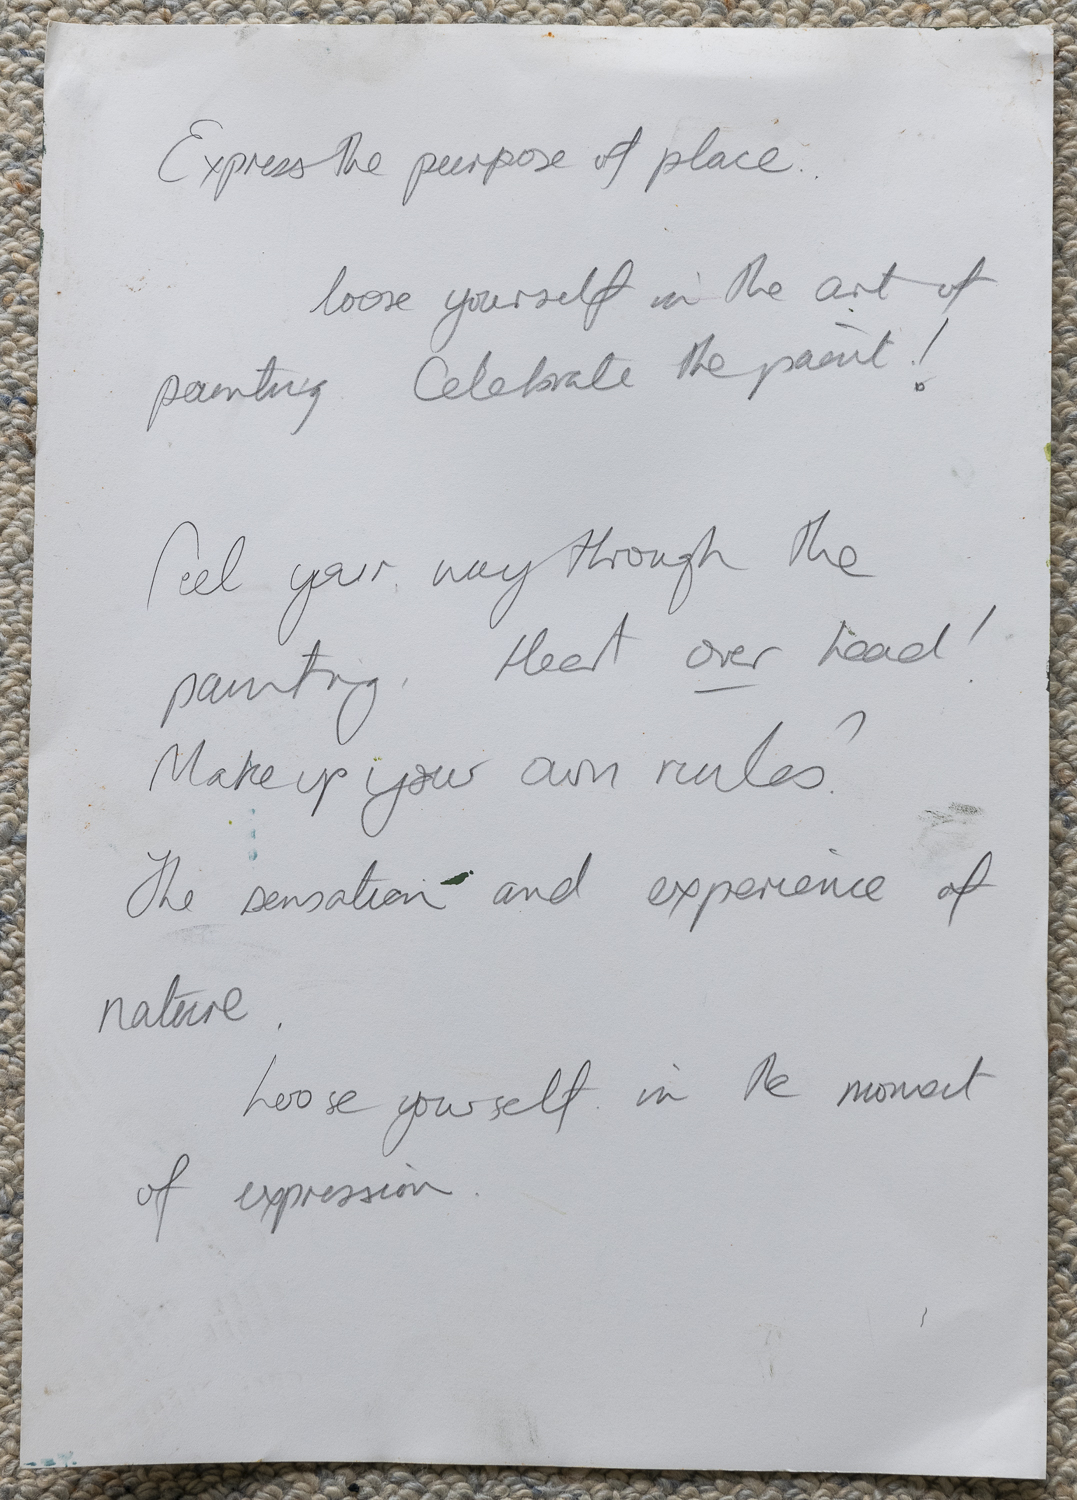 Express the purpose of place..
loose yourself in the art of
painting Celebrate the paint!
Feel your way through the
painting. Heart over head!
Make up your own rules?
The sensation and experience of
nature.
Loose yourself in the moment
of expression.